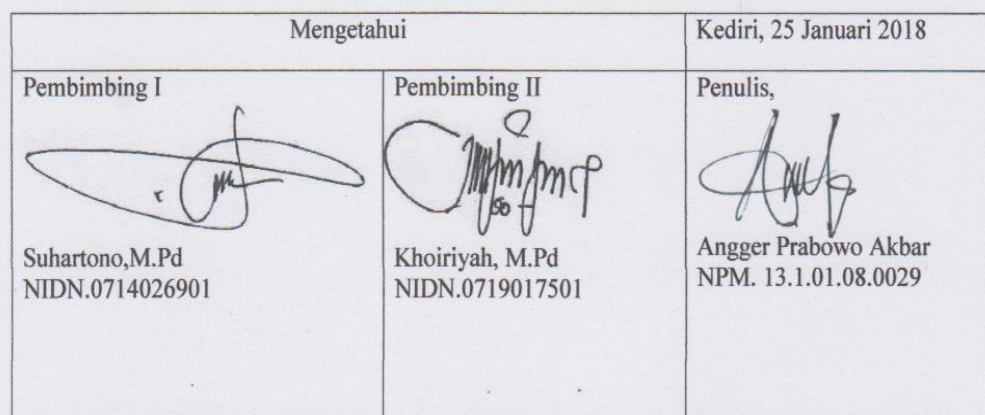 Mengetahui
Kediri, 25 Januari 2018
Pembimbing I
Suhartono,M.Pd
NIDN.0714026901
Pembimbing II
Khoiriyah, M.Pd
NIDN.0719017501
Penulis,
Angger Prabowo Akbar
NPM. 13.1.01.08.0029